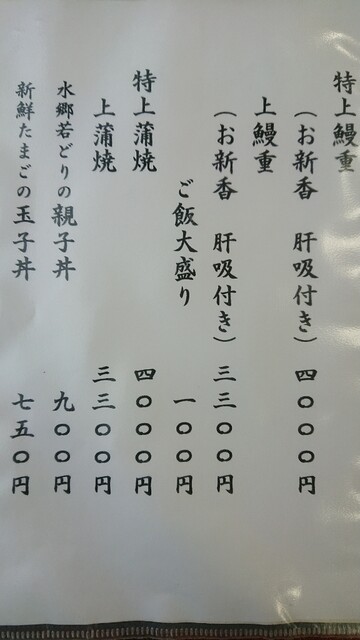 特上鰻重
（お新香　肝吸付き）四〇〇〇円
上鰻重
（お新香　肝吸付き）三三〇〇円
ご飯大盛り　一〇〇円
特上蒲焼　四〇〇〇円
上蒲焼　三三〇〇円
水郷若どりの親子丼　九〇〇円
新鮮たまごの玉子丼　七五〇円